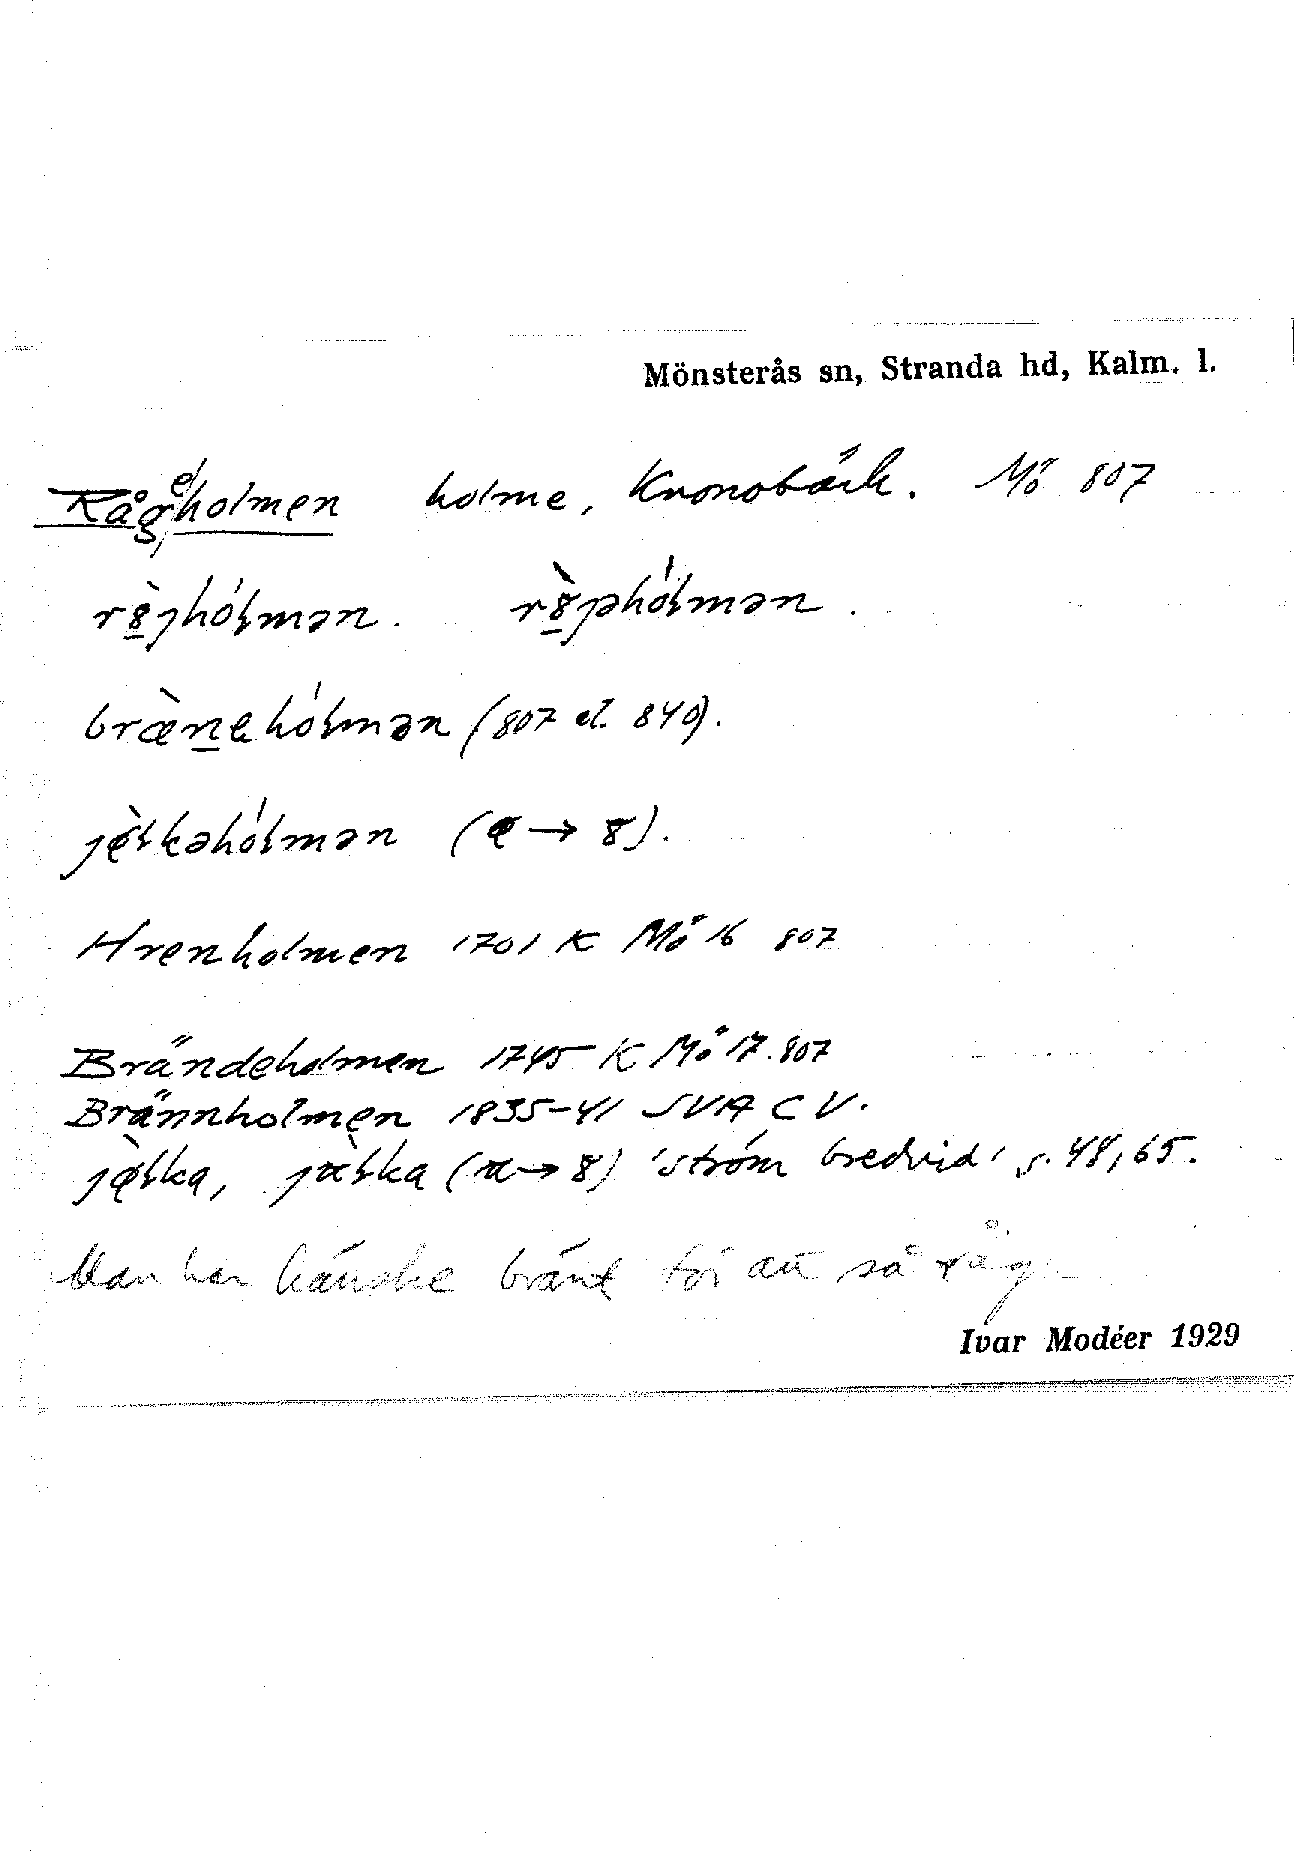 Mönsterås sn, Stranda hd, Kalm. l.
Rågeholmen holme, Kronobäck. Mö 807
rȣ̀jhólmən. rȣ̀jəhólmən.
bræ̀nehólmən (807 el. 840).
jèlkəhólmən (e → ȣ).
Hrenholmen 1701 K Mö 16 807
Brändeholmen 1745 K Mö 17. 807
Brännholmen 1835-41 SVA C V.
jèlka, jæ̀lka (æ → ȣ) 'ström bredvid' s. 48, 65.
Man har kanske bränt för att så råg
Ivar Modéer 1929